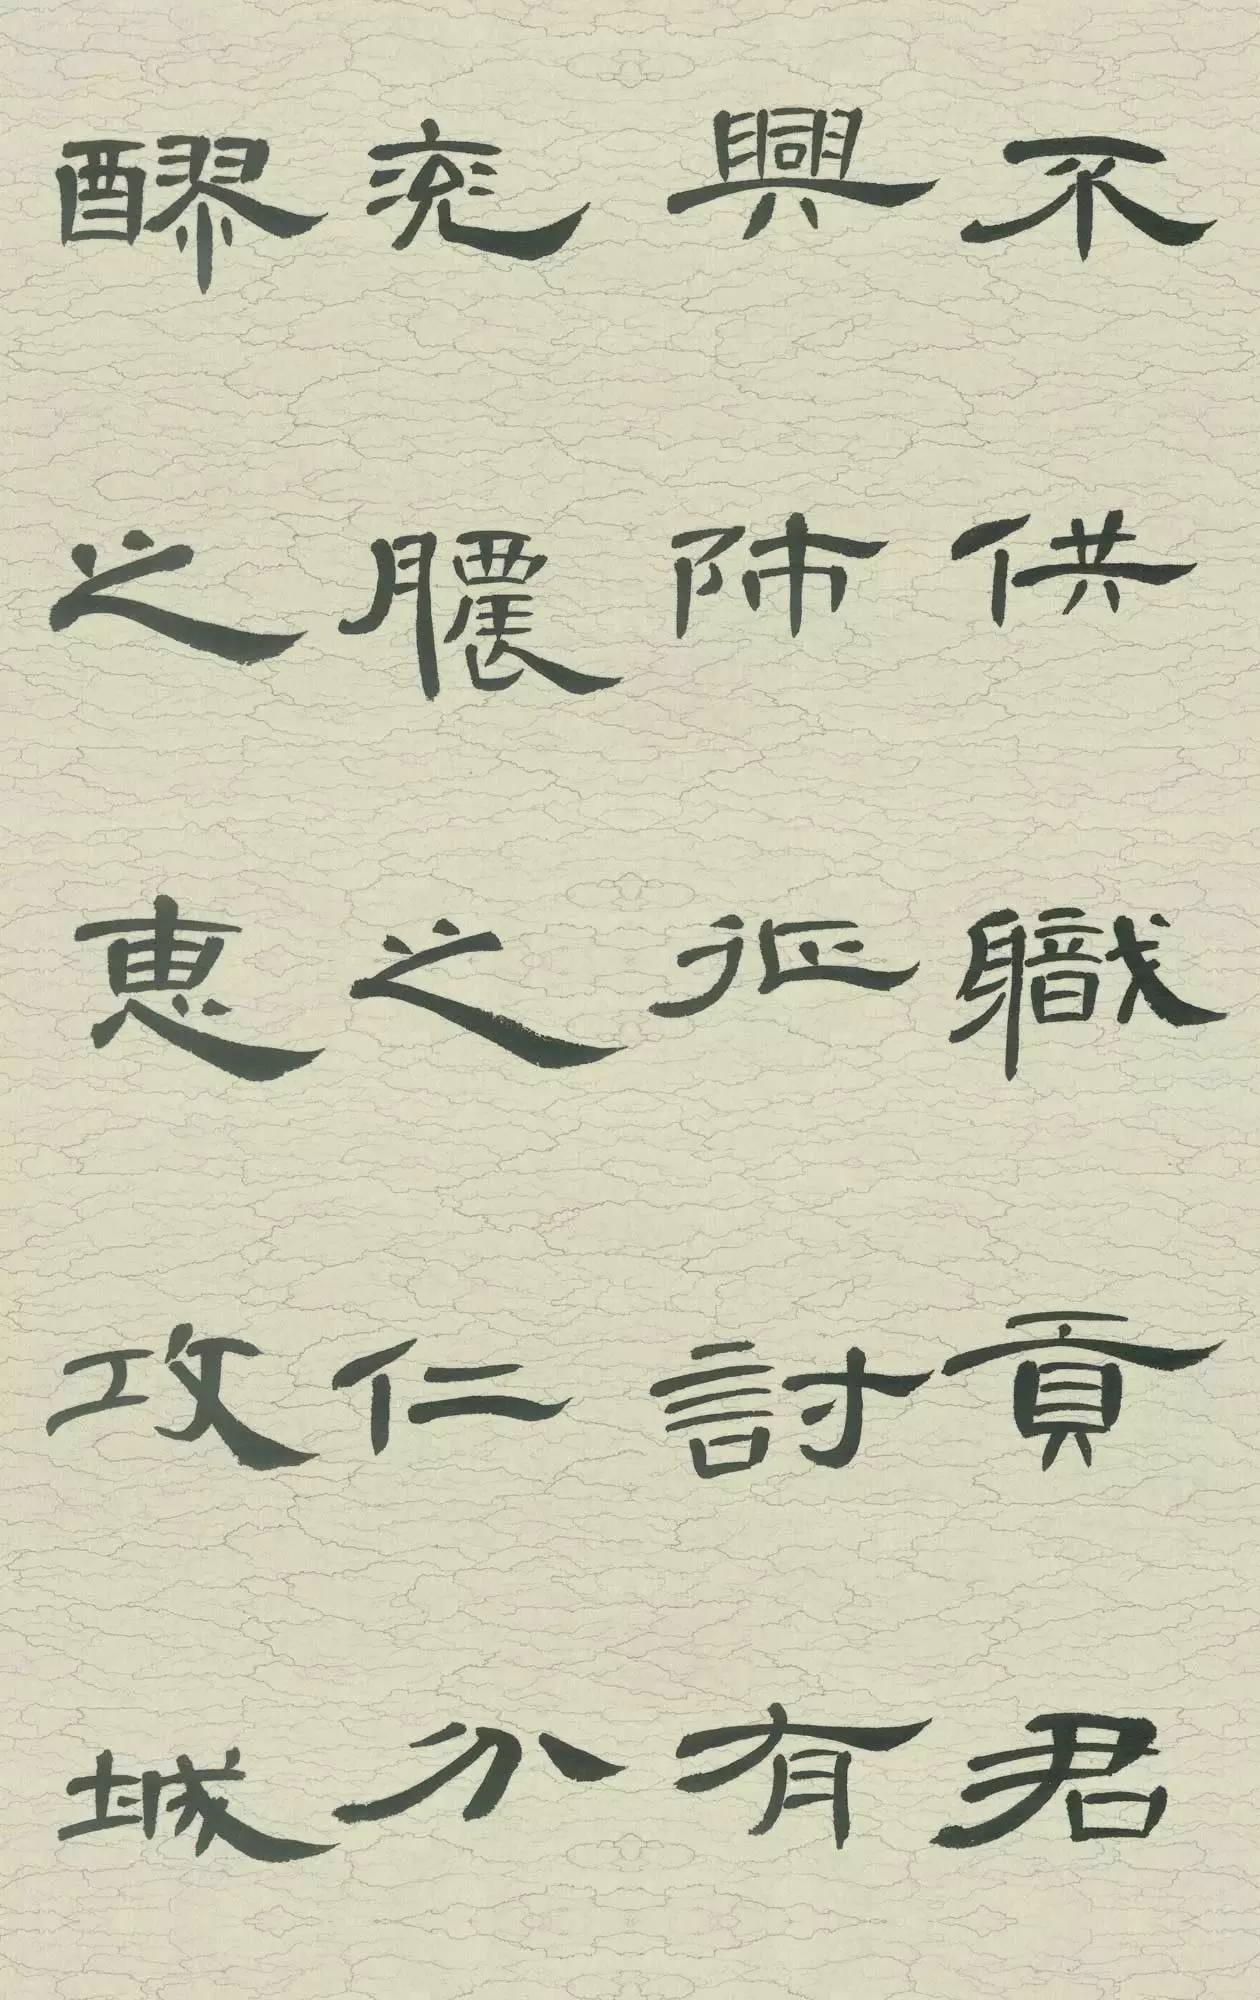 不供職貢君
興師征討有
兖膿之仁分
醪之恵攻城